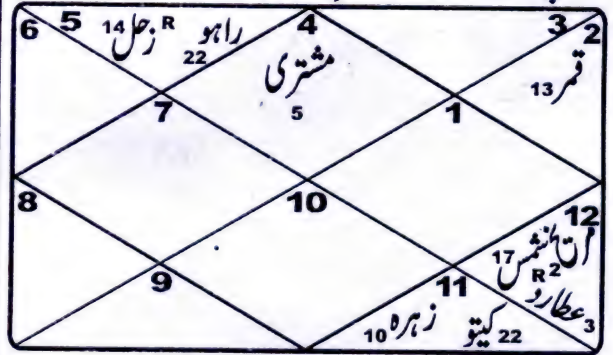 6 5 زحل R 14 راہو 22 4 3 2
مشتری 5
قمر 13
7 1
8 10 12
مریخ
شمس 17
R 2
عطارد 3
9 11
زہرہ 10 کیتو 22